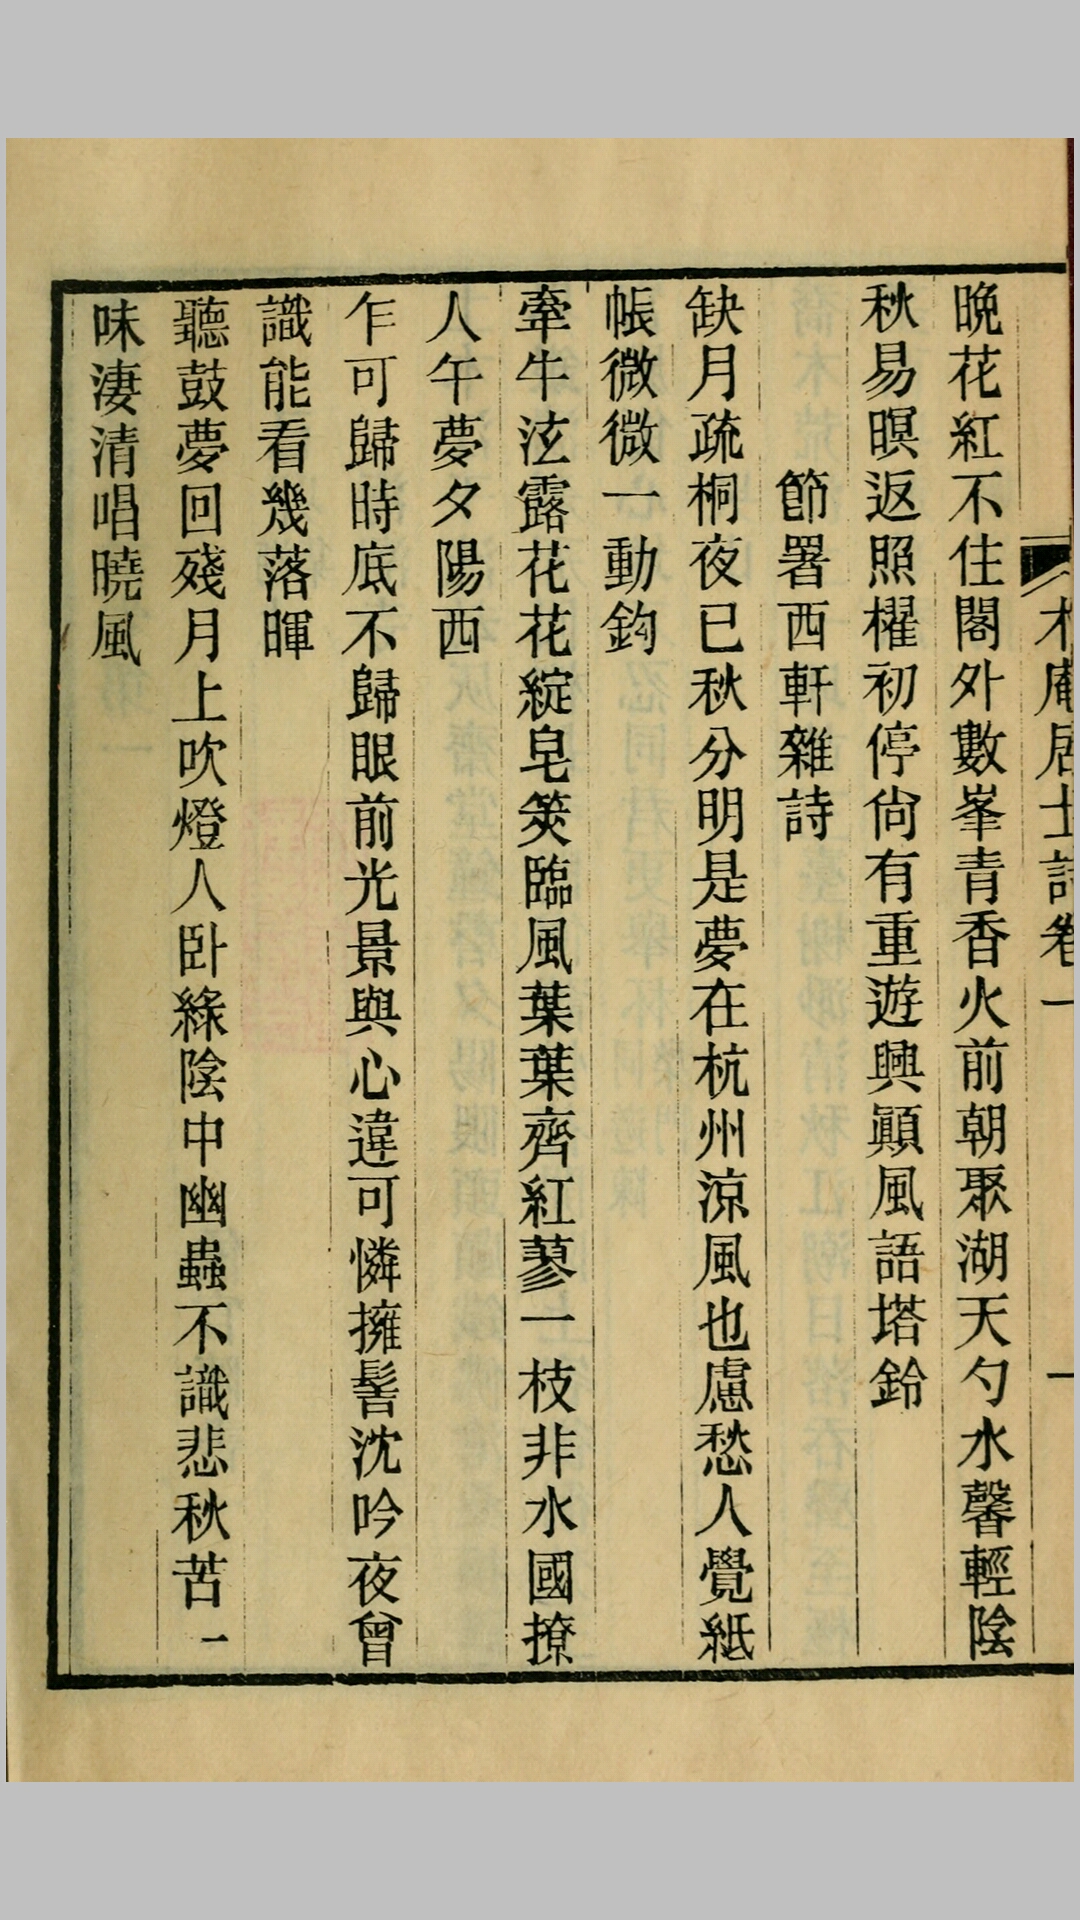 木庵居士詩卷一
一
晩花紅不住閣外數峯青香火前朝聚湖天勺水馨輕陰
秋易暝返照櫂初停尙有重遊興顚風語塔鈴
節署西軒雜詩
缺月疏桐夜已秋分明是夢在杭州涼風也慮愁人覺紙
帳微微一動鈎
牽牛泫露花花綻皂筴臨風葉葉齊紅蓼一枝非水國撩
人午夢夕陽西
乍可歸時底不歸眼前光景與心違可憐擁髻沈吟夜曾
識能看幾落暉
聽鼓夢回殘月上吹燈人卧綠陰中幽蟲不識悲秋苦一
味淒清唱曉風